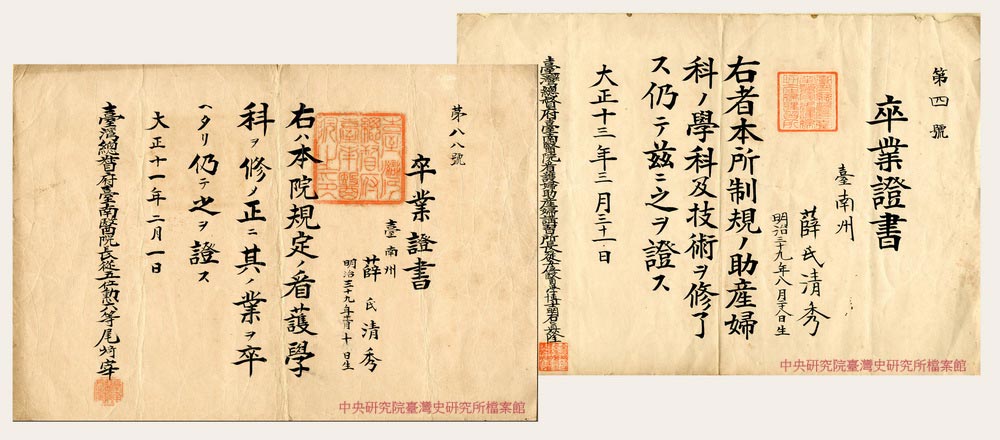 第四號
卒業證書
臺南州
薛氏清秀
右者本所制規ノ助産婦
科ノ學科及技術ヲ修了
ス仍テ茲ニ之ヲ證ス
大正十三年三月三十一日
臺灣總督府臺南醫院看護婦助産婦講習所長
中央研究院臺灣史研究所檔案館
第八八號
卒業證書
臺南州
薛氏清秀
右ハ本院規定ノ看護學
科ヲ修ノ正ニ其ノ業ヲ卒
ヘタリ仍テ之ヲ證ス
大正十一年二月一日
臺灣總督府臺南醫院長從五位勳六等尾﨑宰
中央研究院臺灣史研究所檔案館